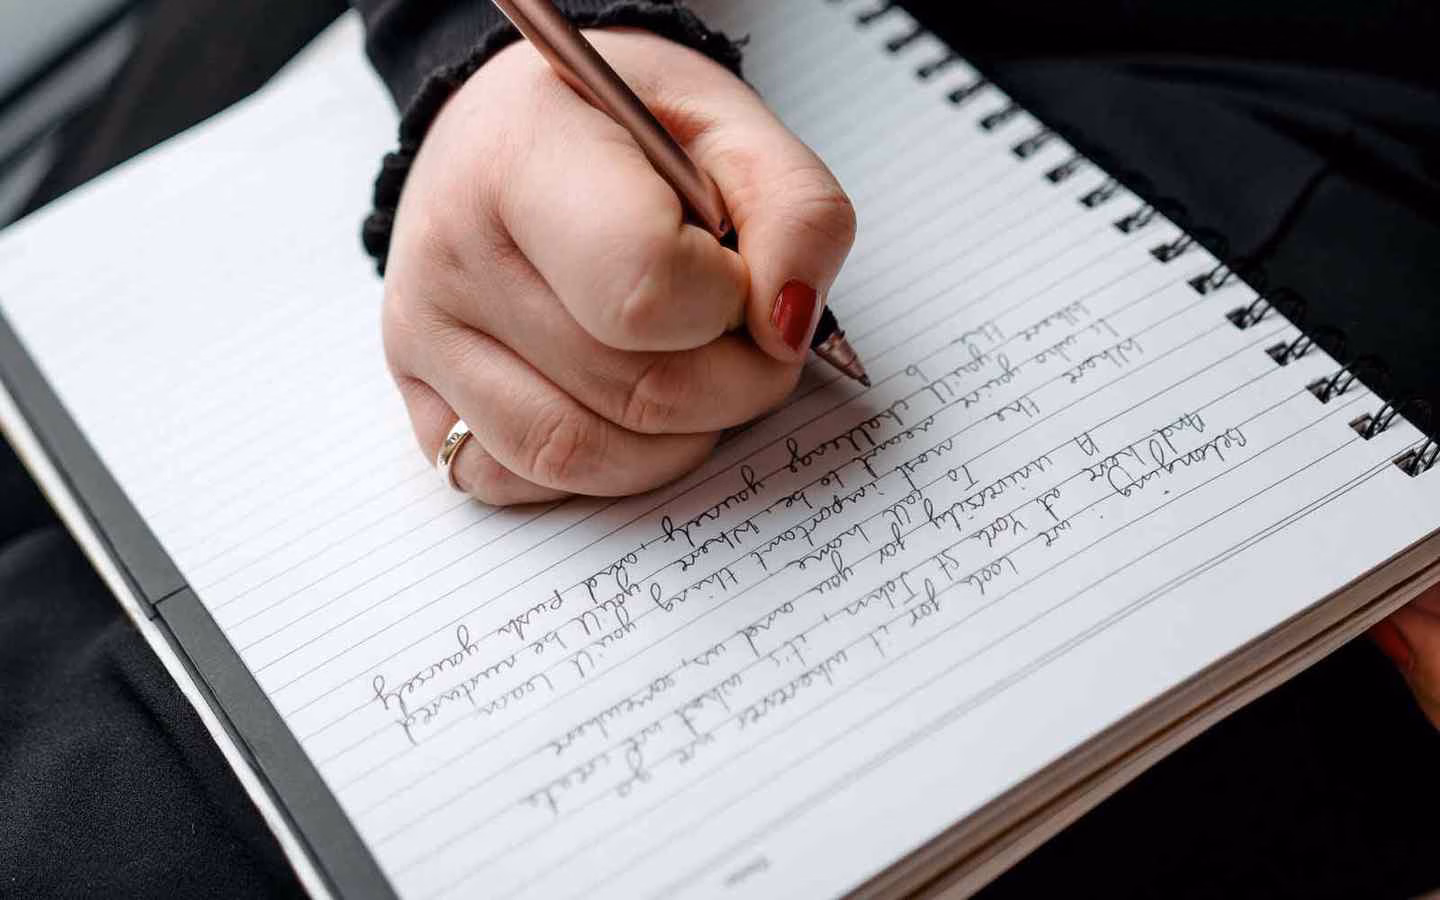 Belonging, we look for it wherever we go
And here at York St John, it's what we create
A university for you and us, somewhere
To call home
Where the most important thing you'll learn
Is who you're meant to be. Where you'll be nurtured
Where you'll challenge yourself, and push yourself
the b